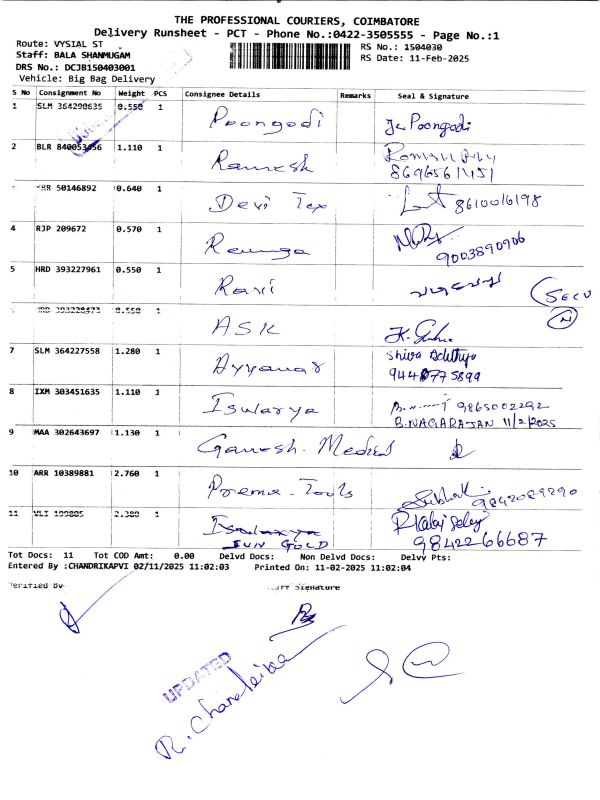 THE PROFESSIONAL COURIERS, COIMBATORE
Delivery Runsheet - PCT - Phone No.:0422-3505555 - Page No.:1
Route: VYSIAL ST
RS No.: 1504030
Staff: BALA SHANMUGAM
RS Date: 11-Feb-2025
DRS No.: DCJB150403001
Vehicle: Big Bag Delivery
S No Consignment No Weight PCS Consignee Details Remarks Seal & Signature
1 SLM 364290635 0.550 1 Poongodi Poongodi
2 BLR 840053456 1.110 1 Ramesh
50146892 0.640 1 Devi Tex 8610016198
4 RJP 209672 0.570 1
9003890906
5 HRD 393227961 0.550 1 Ravi
0.550 1 ASK
7 SLM 364227558 1.280 1 Ayyanar Shiva Adithya
8 IXM 303451635 1.110 1 Iswarya 9865002292
B.NAGARAJAN 11/2/2025
9 MAA 302643697 1.130 1 Ganesh. Medical
10 ARR 10389881 2.760 1 Prema-Tools 9842089290
11 2.380 1
SUN GOLD 9842266687
Tot Docs: 11 Tot COD Amt: 0.00 Delvd Docs: Non Delvd Docs: Delvy Pts:
Entered By :CHANDRIKAPVI 02/11/2025 11:02:03 Printed On: 11-02-2025 11:02:04
Verified By Staff Signature
UPDATED
R. Chandrika